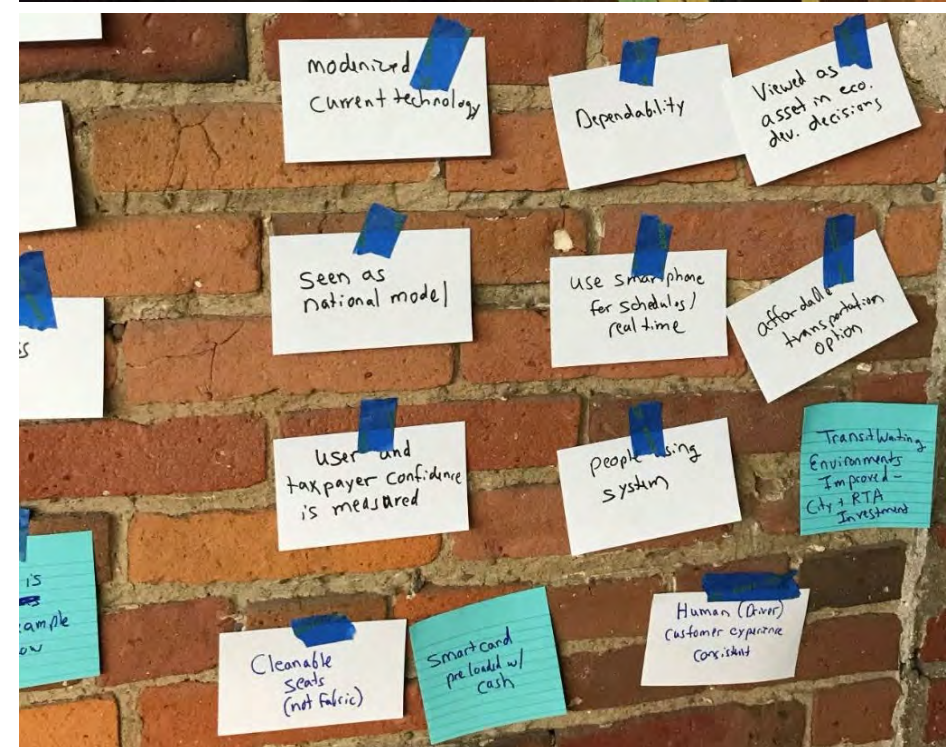 modenized
current technology
Dependability
Viewed as
asset in eco.
dev. decisions
Seen as
national model
use smartphone
for schedules/
real time
affordable
transportation
option
s
user and
taxpayer confidence
is measured
people using
system
Transit Waiting
Environments
Improved -
City + RTA
Investment
is
ample
ow
Cleanable
seats
(not fabric)
Smartcard
preloaded w/
cash
Human (Driver)
customer experience
consistent